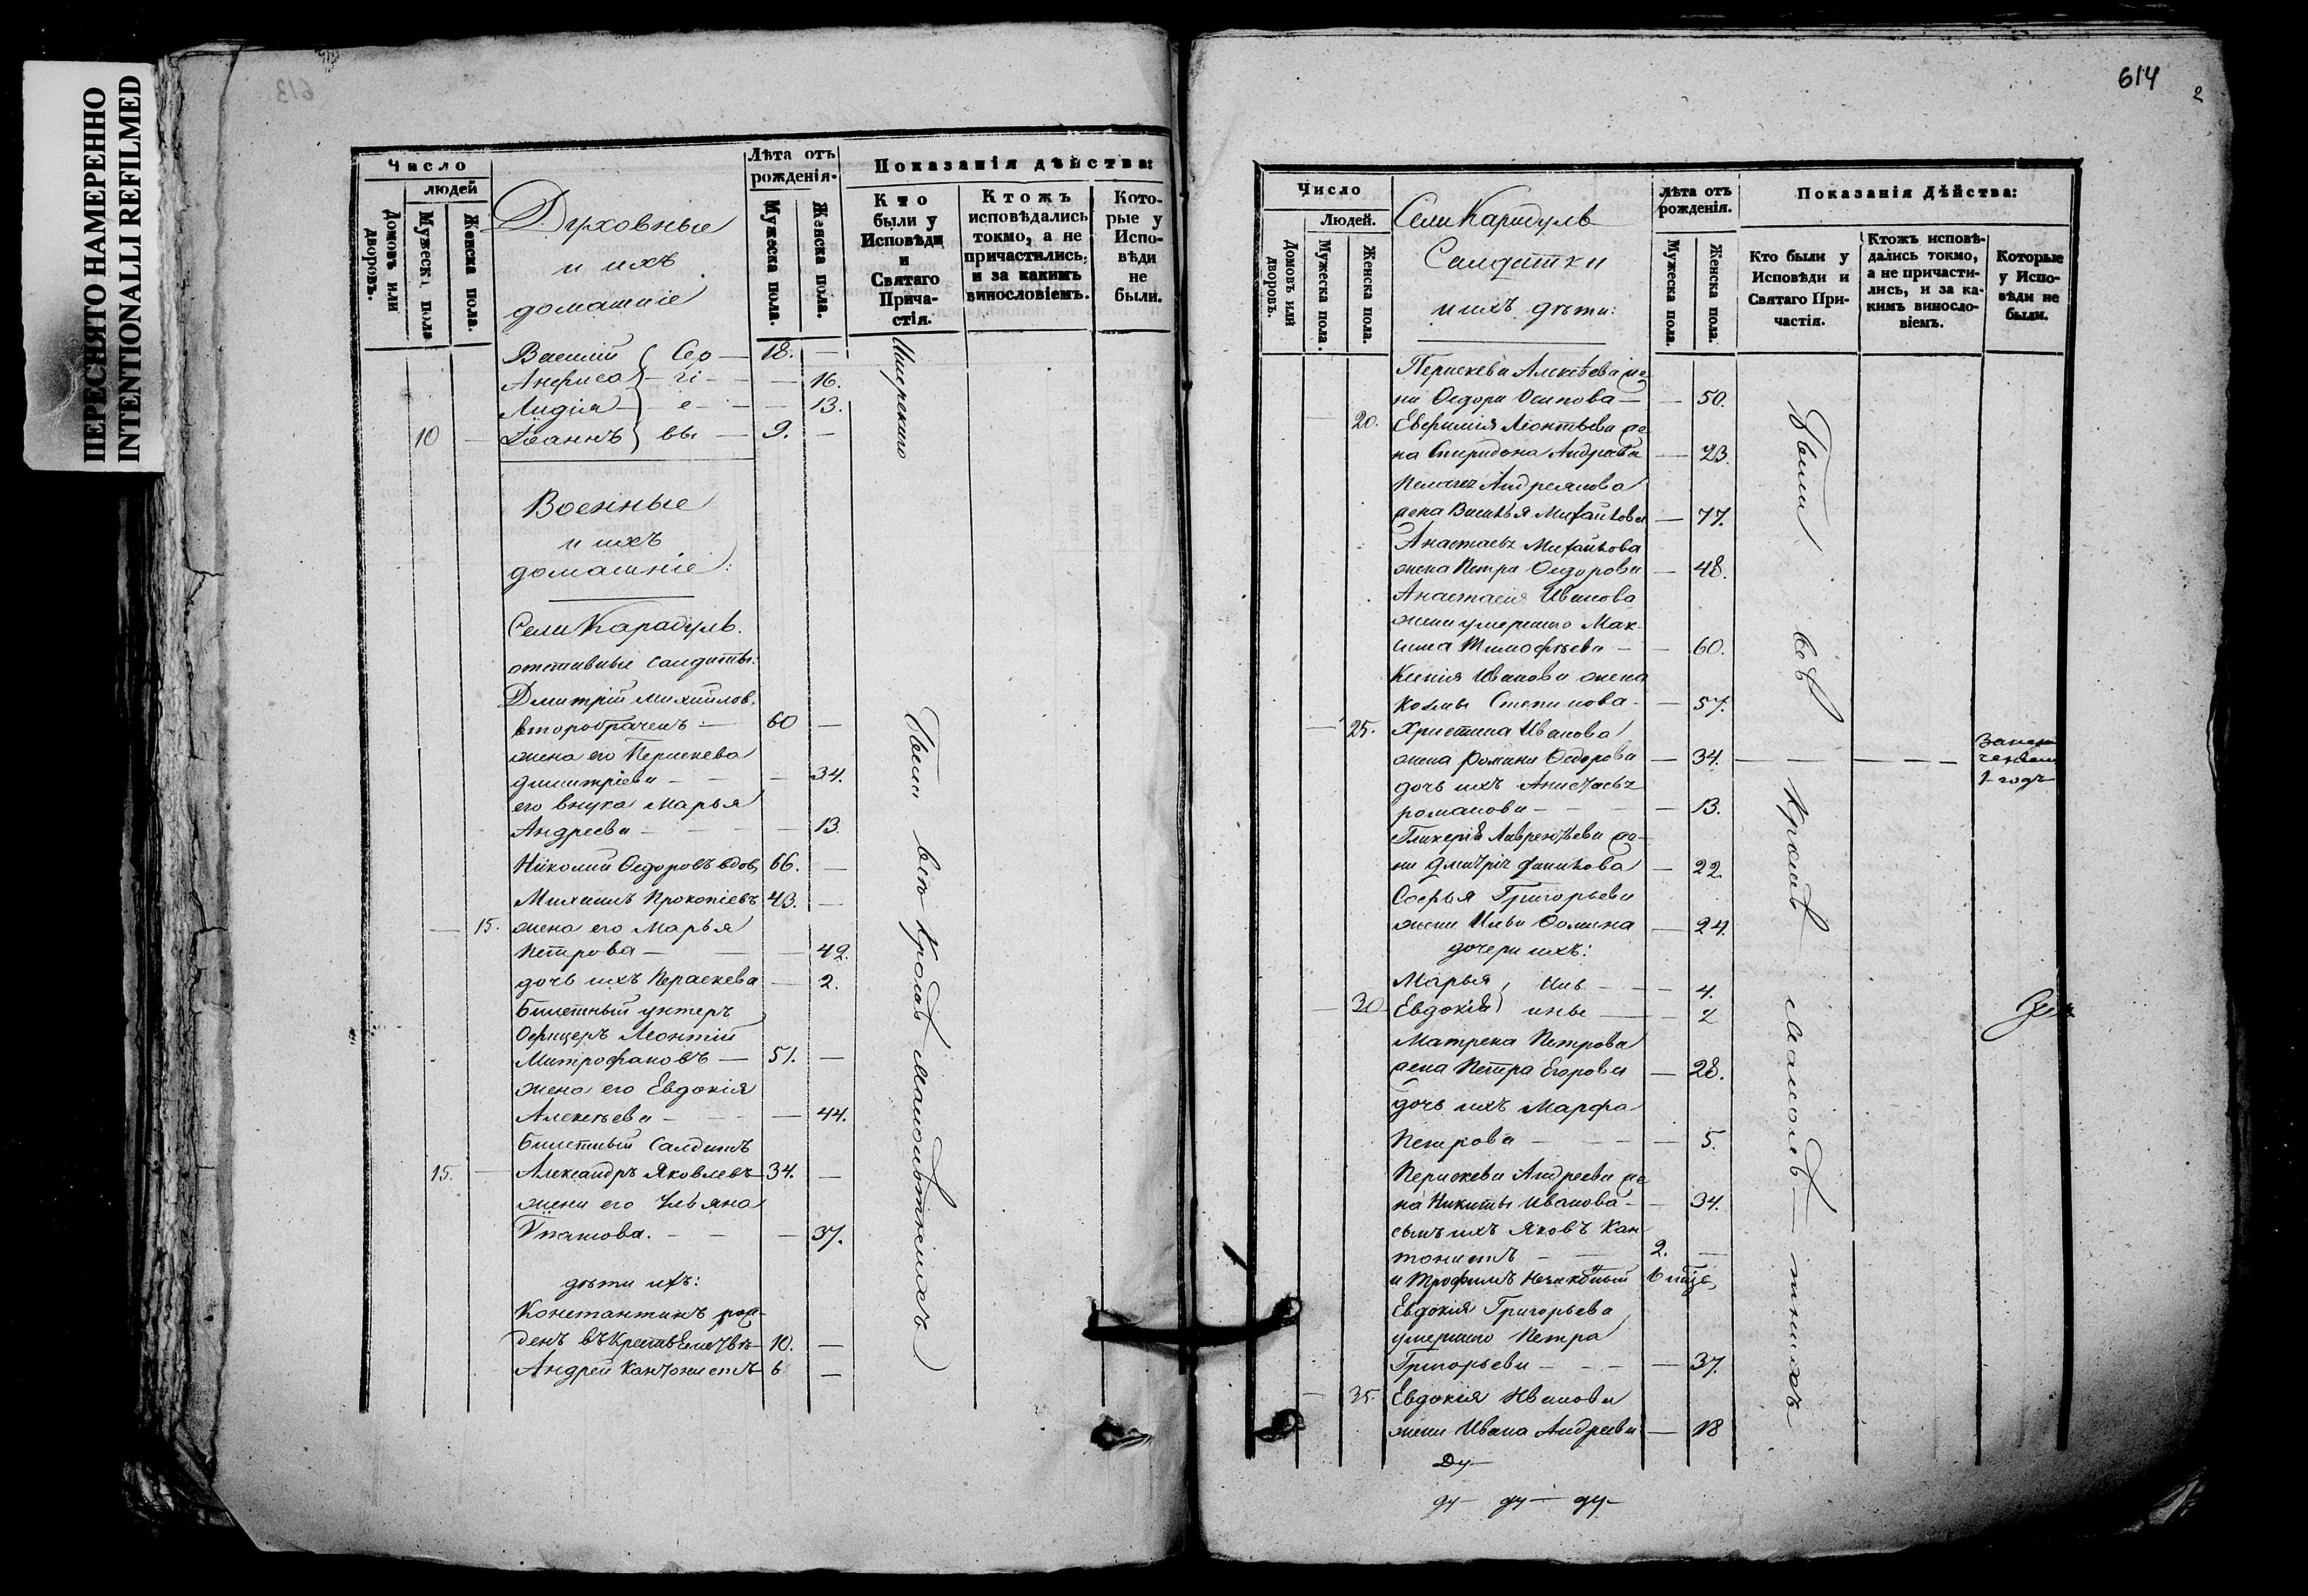 ПЕРЕСНЯТО НАМЕРЕННО
INTENTIONALLI REFILMED
613
Число
людей
Домовъ или дворовъ.
Мужеска пола
Женска пола.
Духовные
и ихъ
домашніе
Лѣта отъ рожденія.
Мужеска пола.
Женска пола.
Показанія дѣйства:
Кто были у Исповѣди и Святаго Прича-стія.
Ктожъ исповѣдались токмо, а не причастились, и за какимъ винословіемъ.
Кото-рые у Испо-вѣди не были.
Василій Сер — 18. —
Анфиса — гі — — 16.
Лидія — е — — 13.
10 — Іоаннъ вы — 9. —
Военные
и ихъ
домашніе:
Села Карадуль
отставные салдаты:
Дмитрій Михайлов.
второбраченъ — 60 —
жена его Параскева
Димитріева — — 34.
его внука Марья
Андреева — — 13.
Николай Ѳедоровъ вдов 66. —
Михаилъ Прокопіевъ 43. —
— 15. жена его Марья
Петрова — — 42.
дочь ихъ Параскева — 2.
Билетный унтеръ
Офицеръ Леонтій
Митрофановъ — 51. —
жена его Евдокія
Алексѣева — — 44.
Билетный Салдатъ
15. — Александръ Яковлевъ — 34. —
жена его Ульяна
Ипатова. — — 37.
дѣти ихъ:
Константинъ рож-
денъ въ 10. —
Андрей Кантонистъ 6 —
Были всѣ кромѣ малолѣтнихъ
614
2
Число
Людей.
Домовъ или дворовъ.
Мужеска пола.
Женска пола.
Села Карадуль
Салдатки
и ихъ дѣти:
Лѣта отъ рожденія.
Мужеска пола.
Женска пола.
Показанія Дѣйства:
Кто были у Исповѣди и Святаго При-частія.
Ктожъ исповѣ-дались токмо, а не причасти-лись, и за ка-кимъ виносло-віемъ.
Которые у Испо-вѣди не были.
Параскева Алексѣева же
на Ѳедора Осипова — — 50.
20. Евфимія Леонтьева же
на Спиридона Андреева — 23.
Пелагея Андреянова
жена Василья Михайлова — 77.
Анастасья Михайлова
жена Петра Ѳедорова — 48.
Анастасия Иванова
жена умершаго Мак-
сима Тимофѣева — — 60.
Ксенія Иванова жена
Козмы Степанова — — 57.
— 25. Христина Иванова
жена Романа Ѳедорова — 34. — — — —
дочь ихъ Анастасья
романова — — 13.
Гликерія Лаврентьева же-
на Дмитрія — 22.
Софья Григорьева
жена Ильи Ѳомина — 24.
дочери ихъ:
Марья, Иль — — 4.
— 30 Евдокія ины — — 2
Матрена Петрова
жена Петра Егорова — 28.
дочь ихъ Марфа
Петрова — — 5.
Параскева Андреева же
на Никиты Иванова — — 34.
сынъ ихъ Яковъ Кан
тонистъ — 2. —
и Трофимъ
Евдокія Григорьева
умершаго Петра
Григорьева — — 37.
— 35. Евдокія Иванова
жена Ивана Андреева — 18
Были всѣ кромѣ малолѣ-тнихъ
1 годъ
Ду-
ду- ду- ду-